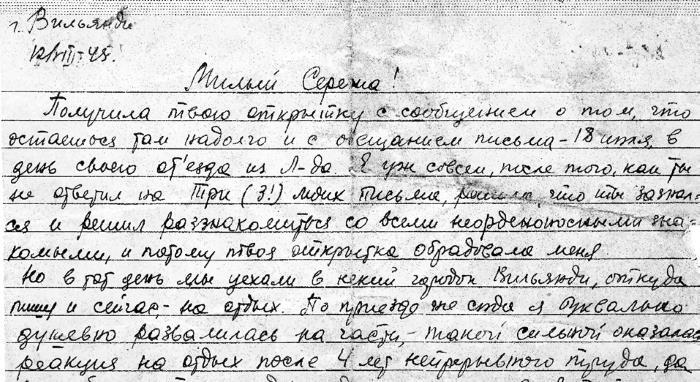 г. Вильянди
12/VIII-45.
Милый Сережа!
Получила твою открытку с сообщением о том, что
остаешься там надолго и с обещанием письма - 18 июля, в
день своего от'езда из Л-да. Я уж совсем, после того, как ты
не ответил на три (3!) моих письма, решила, что ты зазнал-
ся и решил раззнакомиться со всеми неорденоносными зна-
комыми, и потому твоя открытка обрадовала меня
Но в тот день мы уехали в некий городок Вильянди, откуда
пишу и сейчас, - на отдых. По приезде же сюда я буквально
душевно развалилась на части, - такой сильной оказалась
реакция на отдых после 4 лет непрерывного труда, да